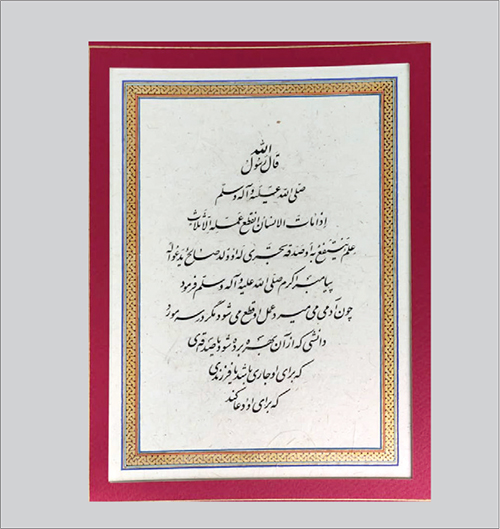 قال رسول الله
صلی الله علیه و آله وسلم
اذا مات الانسان انقطع عمله الا ثلاث
علم ینتفع به أو صدقه تجری له او ولد صالح یدعو له
پیامبر اکرم صلی الله علیه و آله وسلم فرمود
چون آدمی می میرد عمل او قطع می شود مگر در سه مورد
دانشی که از آن بهره برده شود یا صدقه ی
که برای او جاری باشد یا فرزندی
که برای او دعا کند